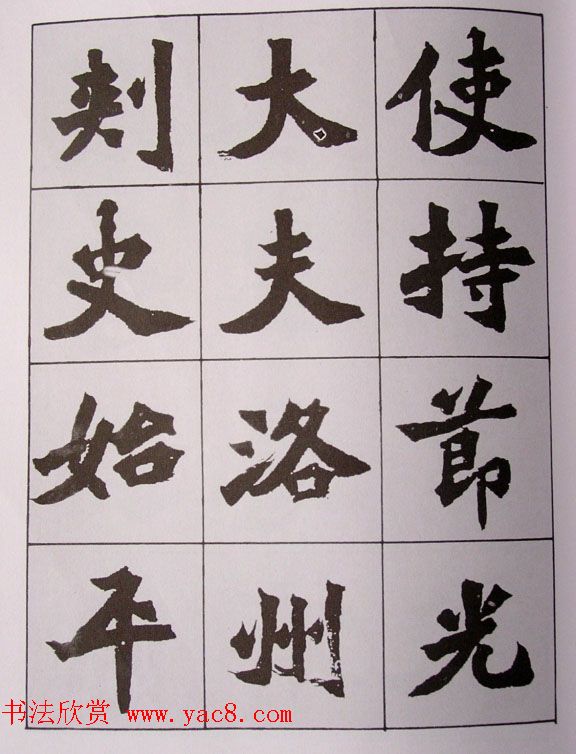 使持節光
大夫洛州
刺史始平
书法欣赏 www.yac8.com